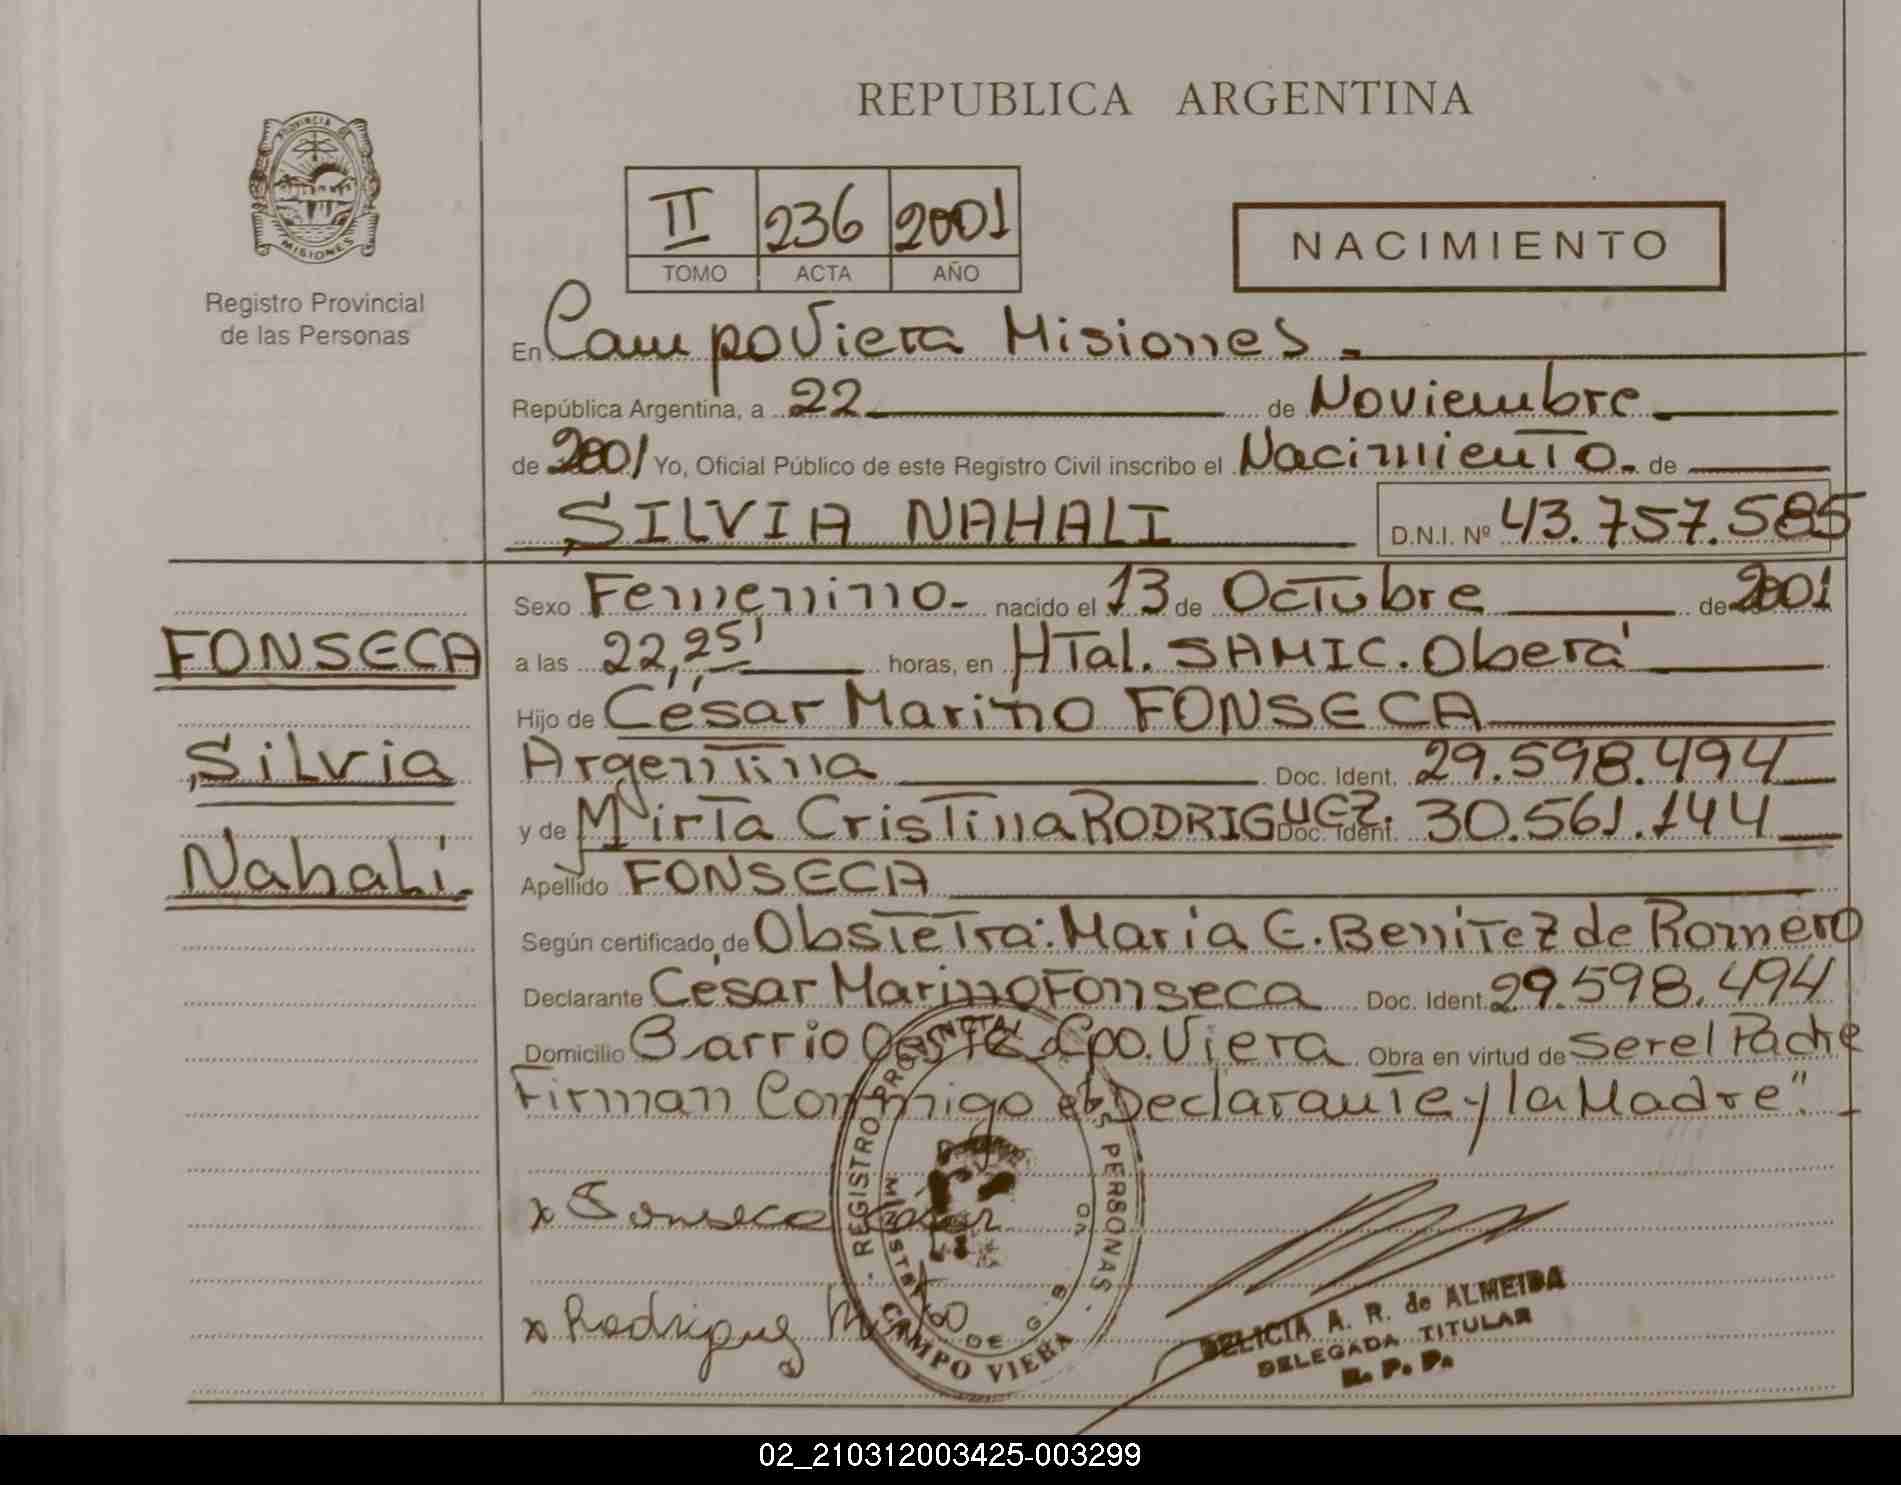 REPUBLICA ARGENTINA
PROVINCIA DE
MISIONES
Registro Provincial
de las Personas
II 236 2001
TOMO ACTA AÑO
NACIMIENTO
En Campo Viera Misiones.
República Argentina, a 22 de Noviembre
de 2001 Yo, Oficial Público de este Registro Civil inscribo el Nacimiento. de
SILVIA NAHALI D.N.I. Nº 43.757.585
FONSECA
Silvia
Nahali.
Sexo Femenino- nacido el 13 de Octubre de 2001
a las 22,25' horas, en HTal. SAMIC. Oberá
Hijo de César Marino FONSECA
Argentina Doc. Ident. 29.598.494
y de Mirta Cristina RODRIGUEZ. Doc. Ident. 30.561.144
Apellido FONSECA
Según certificado de Obstetra: Maria E. Benitez de Romero
Declarante César Marino Fonseca Doc. Ident. 29.598.494
Domicilio Barrio Oeste Cpo. Viera Obra en virtud de Ser el Padre
Firman Conmigo el Declarante y la Madre".
x Fonseca Cesar
x Rodriguez
REGISTRO PROVINCIAL DE LAS PERSONAS
CAMPO VIERA
DELICIA A. R. de ALMEIDA
DELEGADA TITULAR
R. P. P.
02_210312003425-003299